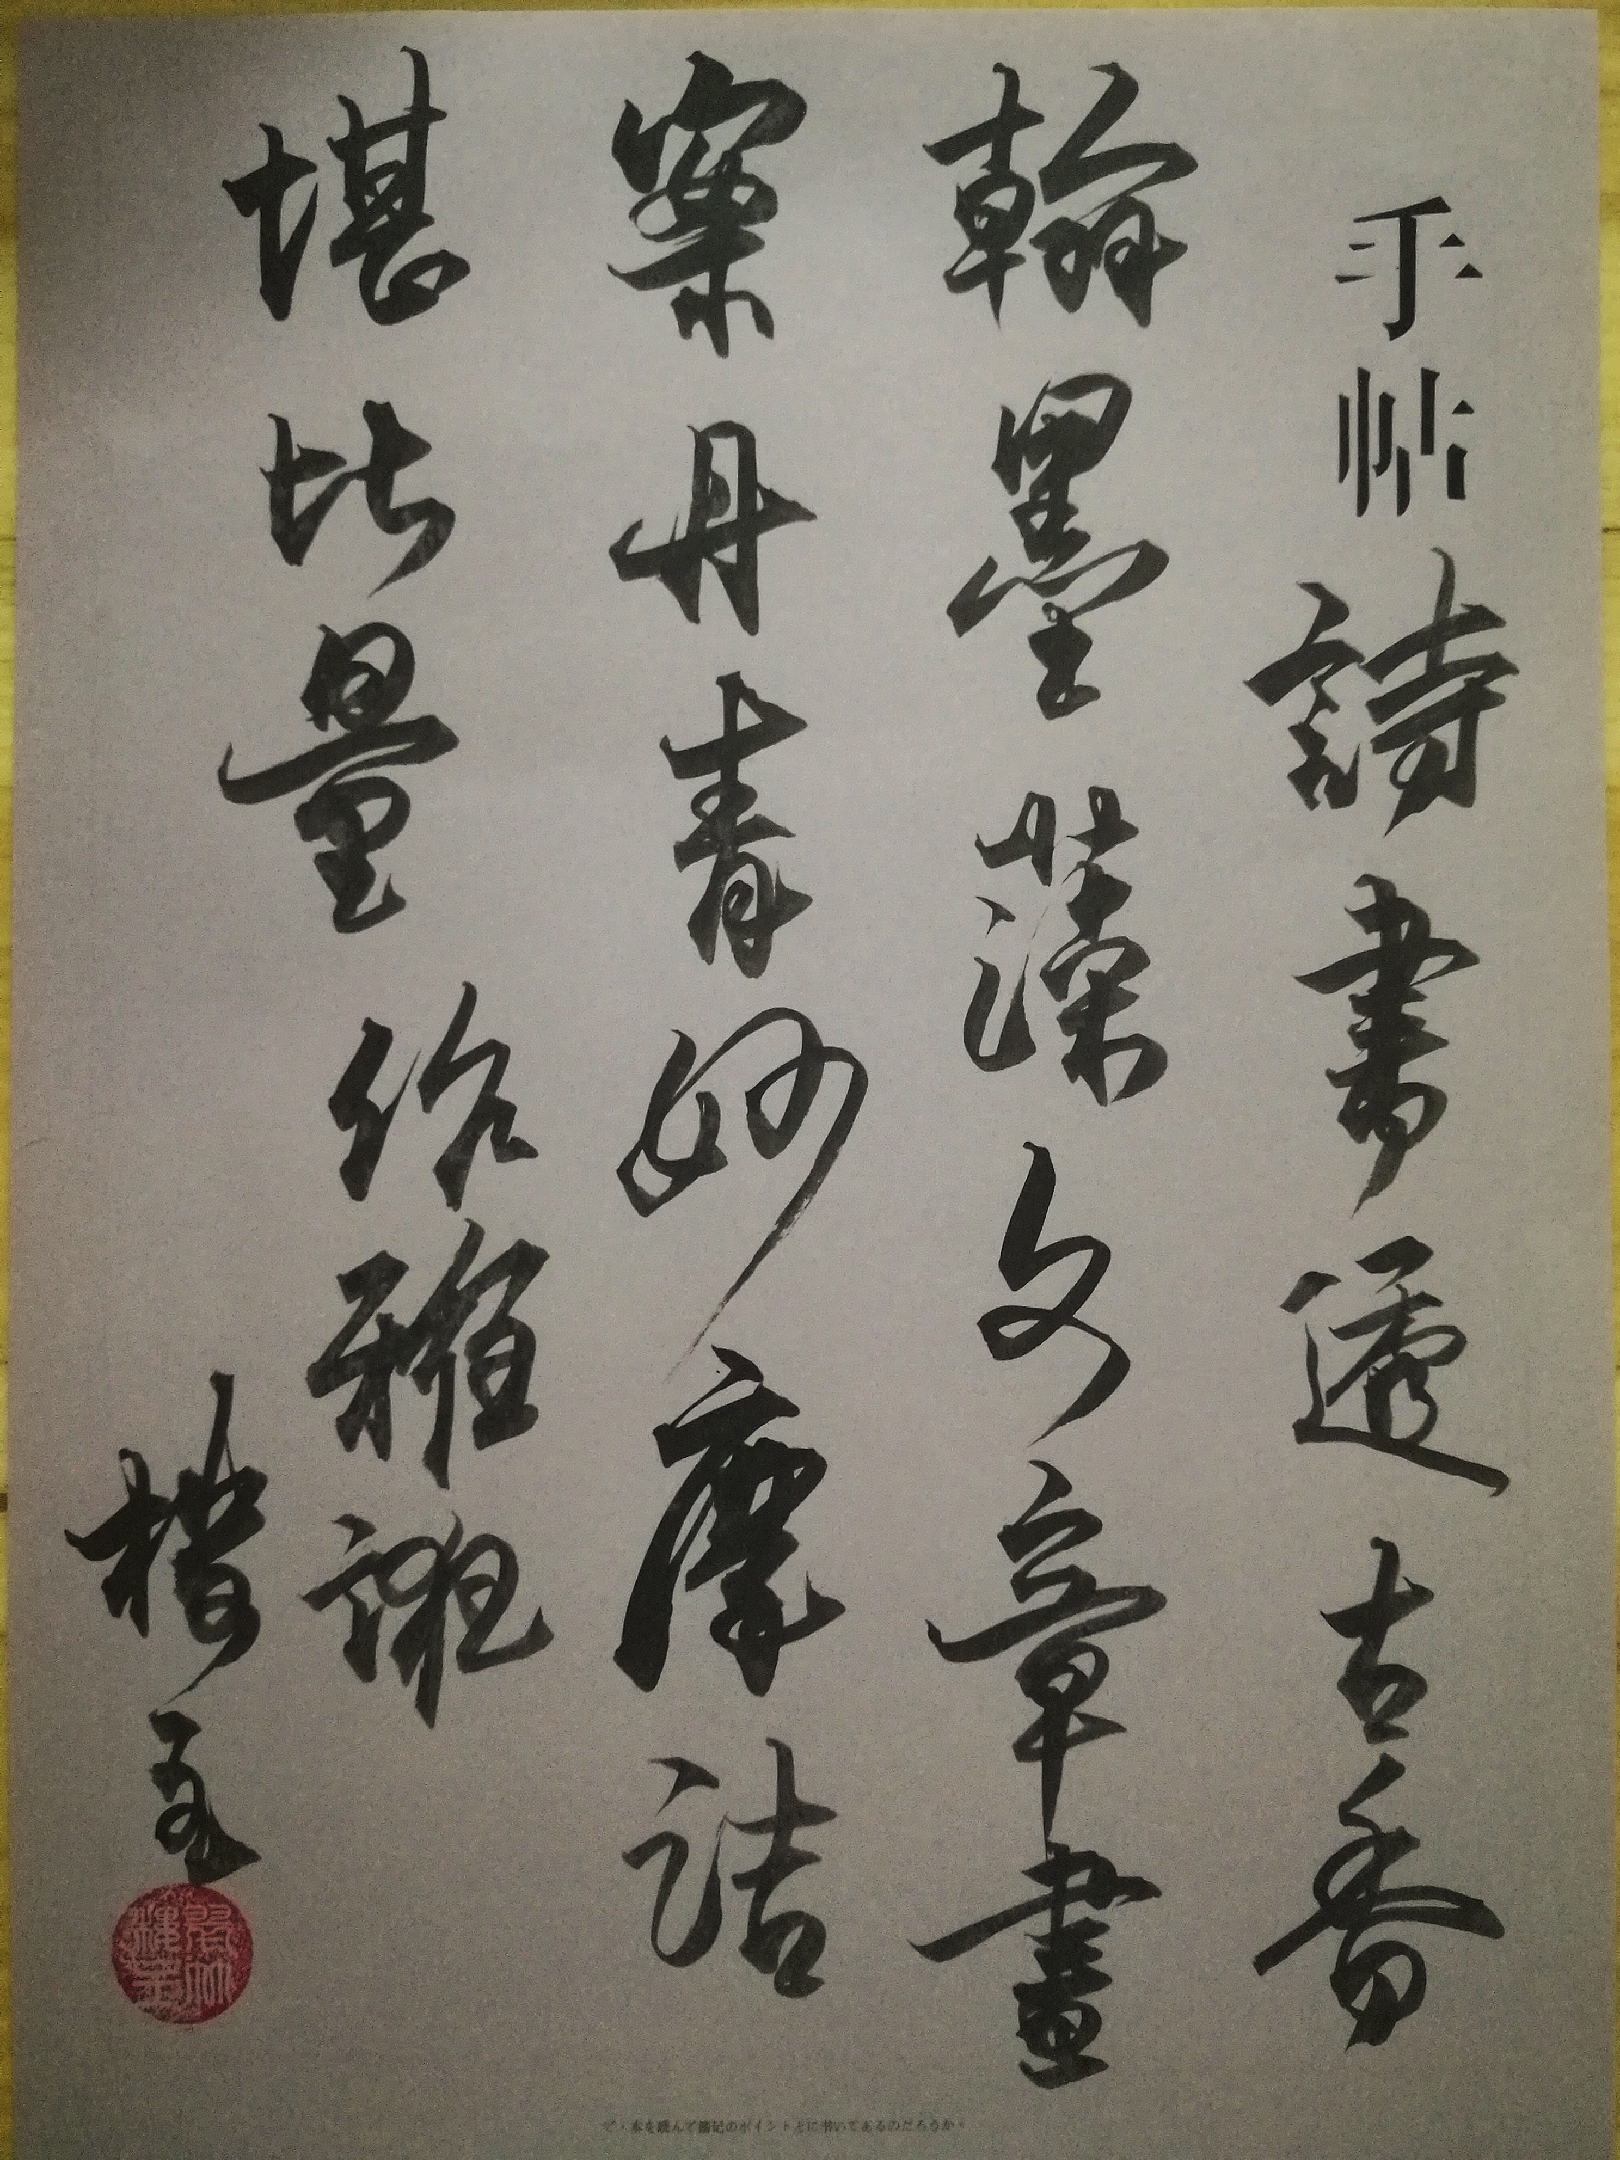 手帖
詩書透古香
翰墨藻文章畫
案丹青妙摩詰
堪比量作雅謎
楷至
で・本を読んで簿記のポイントそに書いてあるのだろうか。